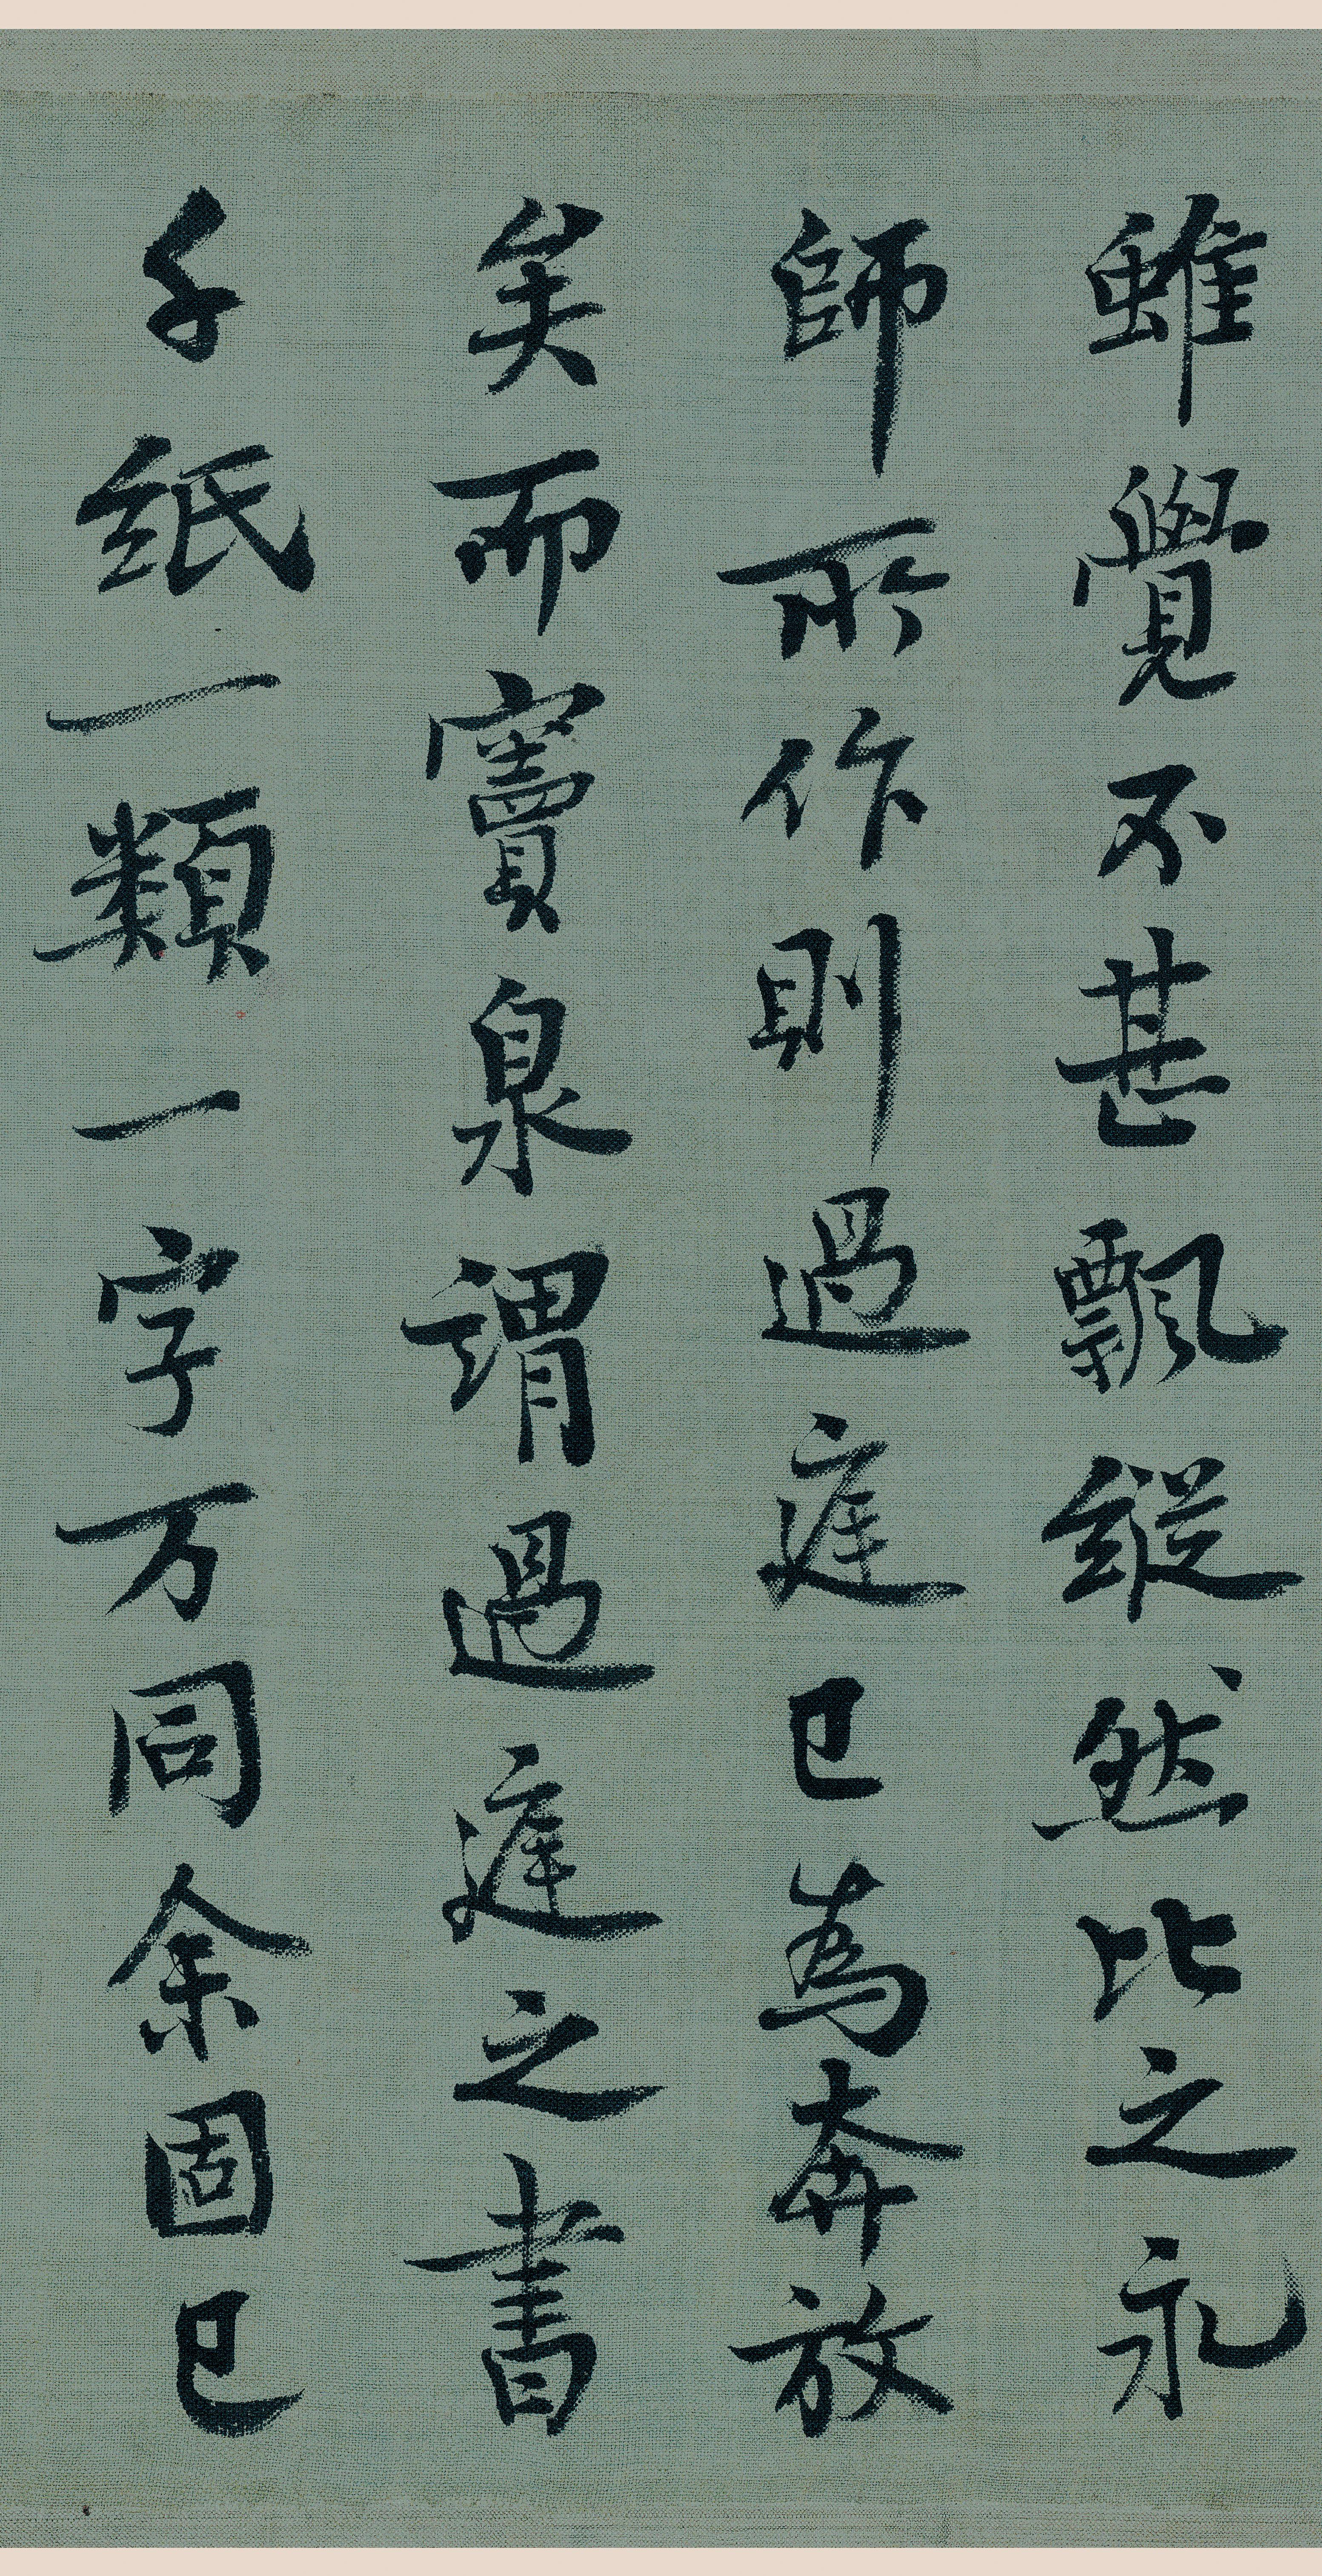 雖覺不甚飄縱然比之永
師所作則過庭已爲奔放
矣而竇泉謂過庭之書
千紙一類一字万同余固已